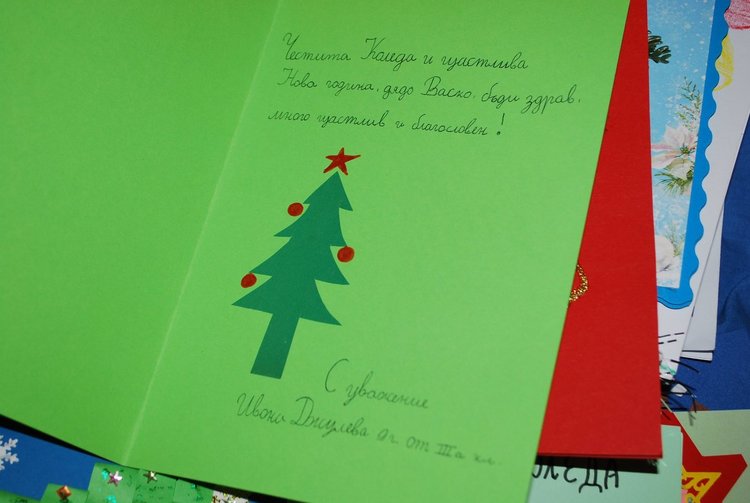 Честита Коледа и щастлива
Нова година, дядо Васко, бъди здрав,
много щастлив и благословен!
С уважение
Ивона Джулева 9г. от IIIа кл.
ОЛЕДА